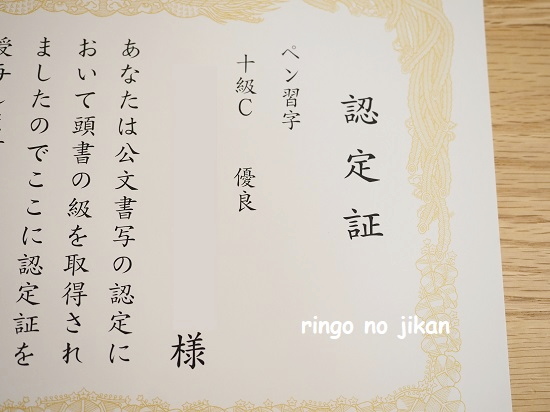 認定証
ペン習字
十級C 優良
様
あなたは公文書写の認定に
おいて頭書の級を取得され
ましたのでここに認定証を
ringo no jikan